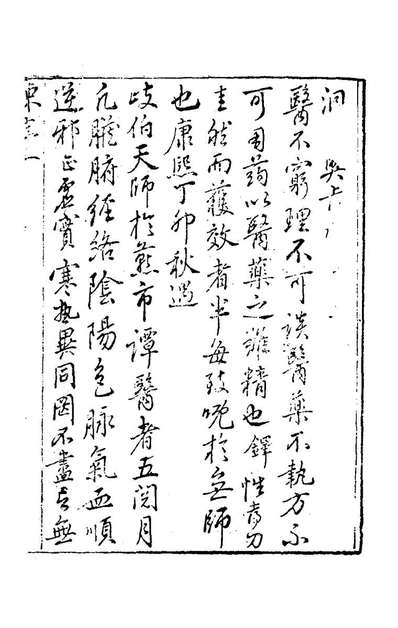 洞 吳
醫不窮理不可談醫藥不執方不
可用药以醫藥之難精也鐸性耆刀
圭然而獲效者半每致唲於無師
也康熙丁卯秋遇
岐伯天師於燕市譚醫者五閱月
凡臟腑經絡陰陽色脉氣血順
逆邪正虛實寒熱異同罔不盡言無
陳序一